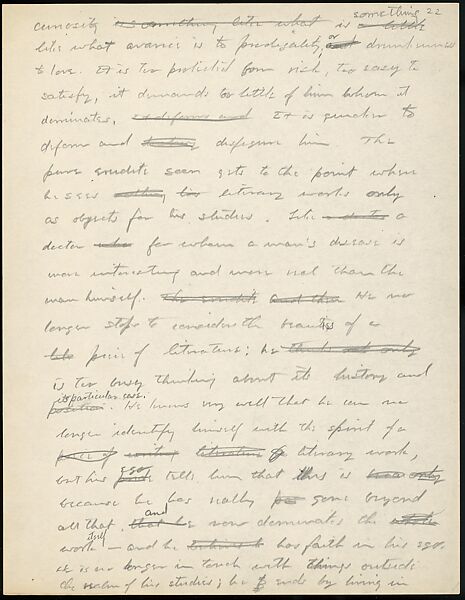 something 22
curiosity is something like what is a little
like what avarice is to prodigality, or and drunkenness
to love. It is too protected from risk, too easy to
satisfy, it demands too little of him whom it
dominates, and deforms and It is quicker to
deform and disfigure him. The
pure erudite soon gets to the point where
he sees literary works only
as objects for his studies. Like a
doctor who for whom a man's disease is
more interesting and more real than the
man himself. The erudite and then He no
longer stops to consider the beauties of a
piece of literature; he thinks not only
is too busy thinking about its history and
its particular case.
position. He knows very well that he can no
longer identify himself with the spirit of a
piece of writing literature of literary work,
but his ego tells him that this is only
because he has really gone beyond
and
all that, that he now dominates the whole
itself
work – and he believes has faith in his ego.
He is no longer in touch with things outside
the realm of his studies; he ends by living in